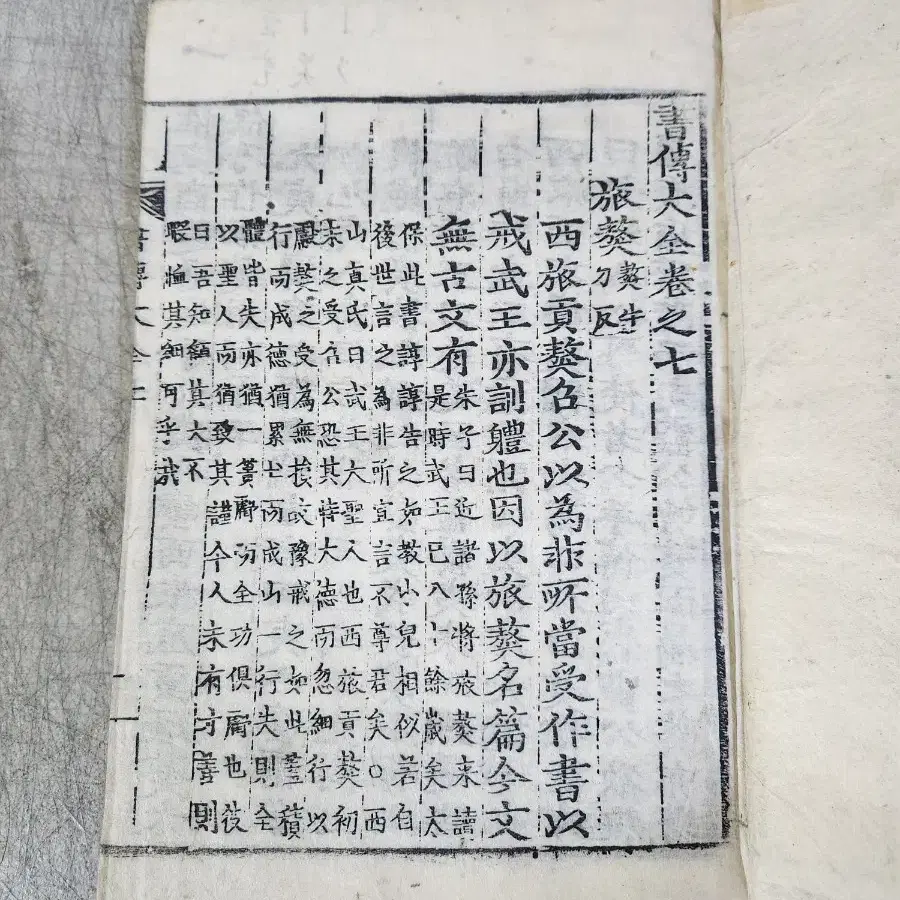 書傳大全卷之七
旅獒獒牛刀反
西旅貢獒召公以為非所當受作書以
戒武王亦訓體也因以旅獒名篇今文
無古文有朱子曰近諸孫將旅獒來讀
是時武王已八十餘歲矣太
保此書諄諄告之如教小兒相似若自
後世言之為非所宜言不尊君矣○西
山真氏曰武王大聖人也西旅貢獒初
未之受召公恐其恃大德而忽細行以
獒之受為無損故豫戒之如此蓋積
行而成德猶累土而成山一行失則全
體皆失亦猶一簣虧而全功俱虧也後
以聖人而猶致其謹今人未有寸善則
曰吾知顧其大不
暇恤其細可乎哉
書傳大全七